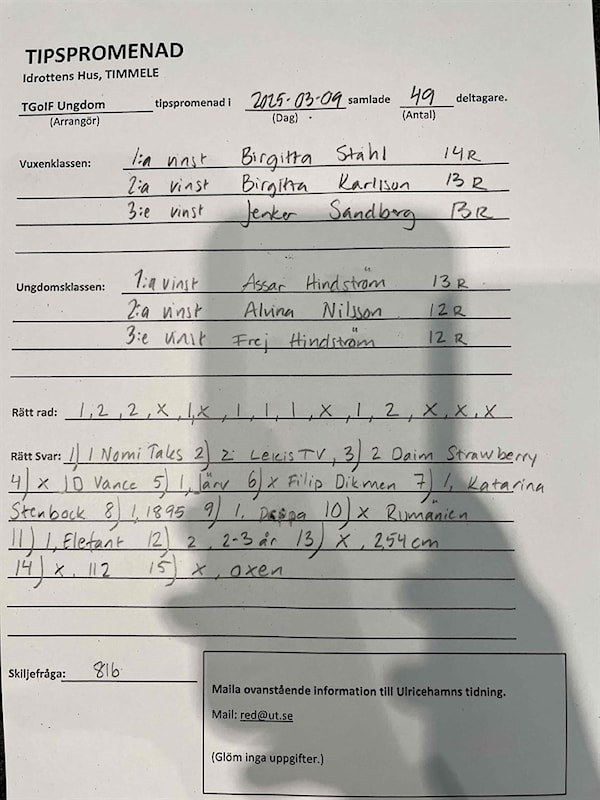 TIPSPROMENAD
Idrottens Hus, TIMMELE
TGoIF Ungdom tipspromenad i 2025-03-09 samlade 49 deltagare.
(Arrangör) (Dag) (Antal)
Vuxenklassen: 1:a vinst Birgitta Ståhl 14 R
2:a vinst Birgitta Karlsson 13 R
3:e vinst Jenker Sandberg 13 R
Ungdomsklassen: 1:a vinst Assar Hindström 13 R
2:a vinst Alvina Nilsson 12 R
3:e vinst Frej Hindström 12 R
Rätt rad: 1, 2, 2, X, 1, X, 1, 1, 1, X, 1, 2, X, X, X
Rätt Svar: 1) 1 Nomi Taks 2) 2 Lekis TV, 3) 2 Daim Strawberry
4) X JD Vance 5) 1, Järv 6) X Filip Dikmen 7) 1, Katarina
Stenbock 8) 1, 1895 9) 1, 10) X Rumänien
11) 1, Elefant 12) 2, 2-3 år 13) X, 254 cm
14) X. 112 15) X, oxen
Skiljefråga: 816
Maila ovanstående information till Ulricehamns tidning.
Mail: red@ut.se
(Glöm inga uppgifter.)